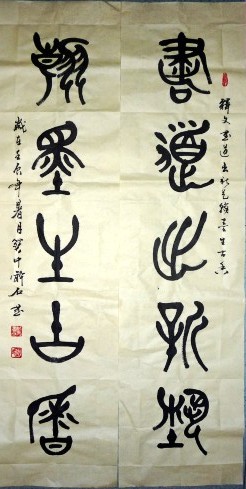 釋文書道出新艺翰墨生古香
書道出新埶
翰墨生古香
歲在壬辰年暑月賀中石書